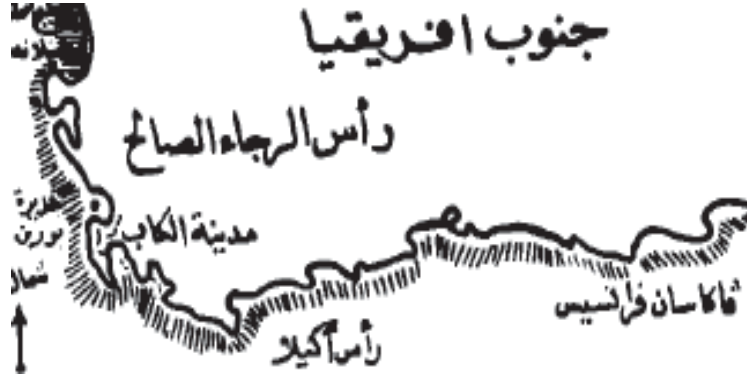 جنوب افريقيا
رأس الرجاء الصالح
مدينة الكاب
شمال
رأس أكيلا
فاكاسان فرانسيس